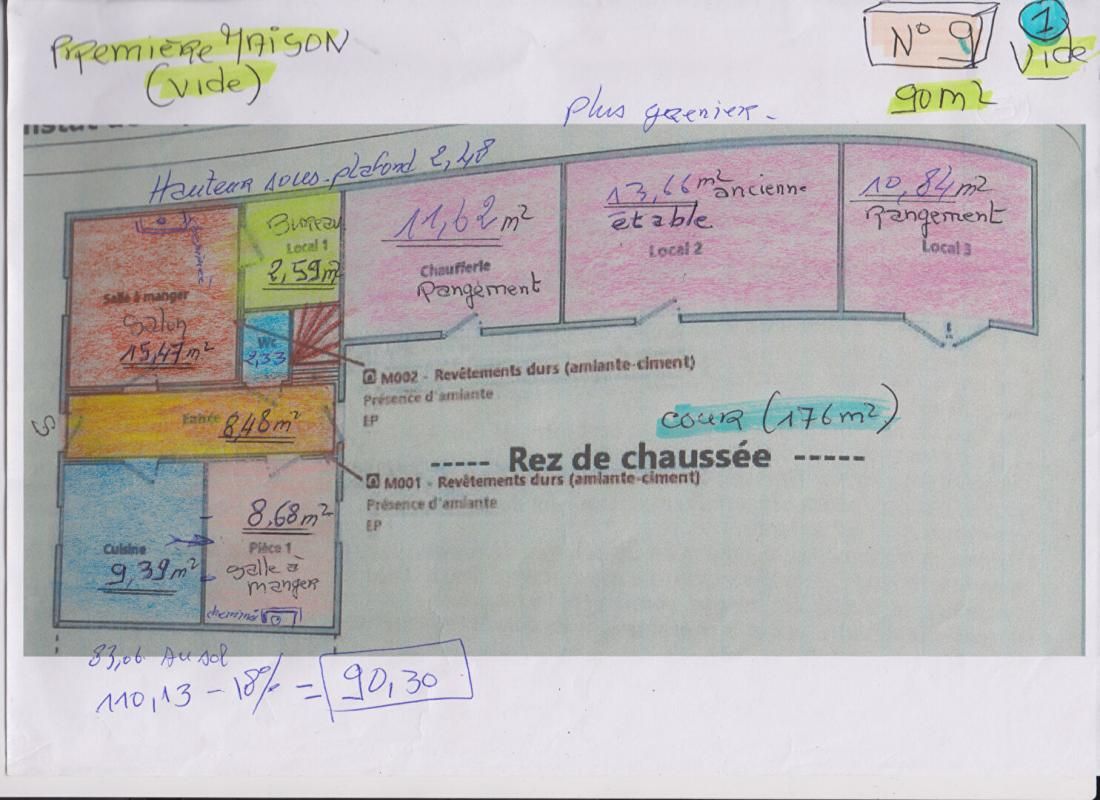 PREMIÈRE MAISON
(VIDE)
N° 9
1
VIDE
90m²
Plus grenier.
Hauteur sous-plafond 2,48
Salle à manger
Salon
15,47m²
Bureau
Local 1
2,59m²
WC
2,33
11,62 m²
Chaufferie
Rangement
13,66 m²
ancienne
étable
Local 2
10,84m²
Rangement
Local 3
M002 - Revêtements durs (amiante-ciment)
Présence d'amiante
EP
Entrée
8,48m²
cour (176m²)
----- Rez de chaussée -----
M001 - Revêtements durs (amiante-ciment)
Présence d'amiante
EP
Cuisine
9,39m²
8,68m²
Pièce 1
salle à
manger
cheminée
83,06 AU SOL
110,13 - 18% = 90,30